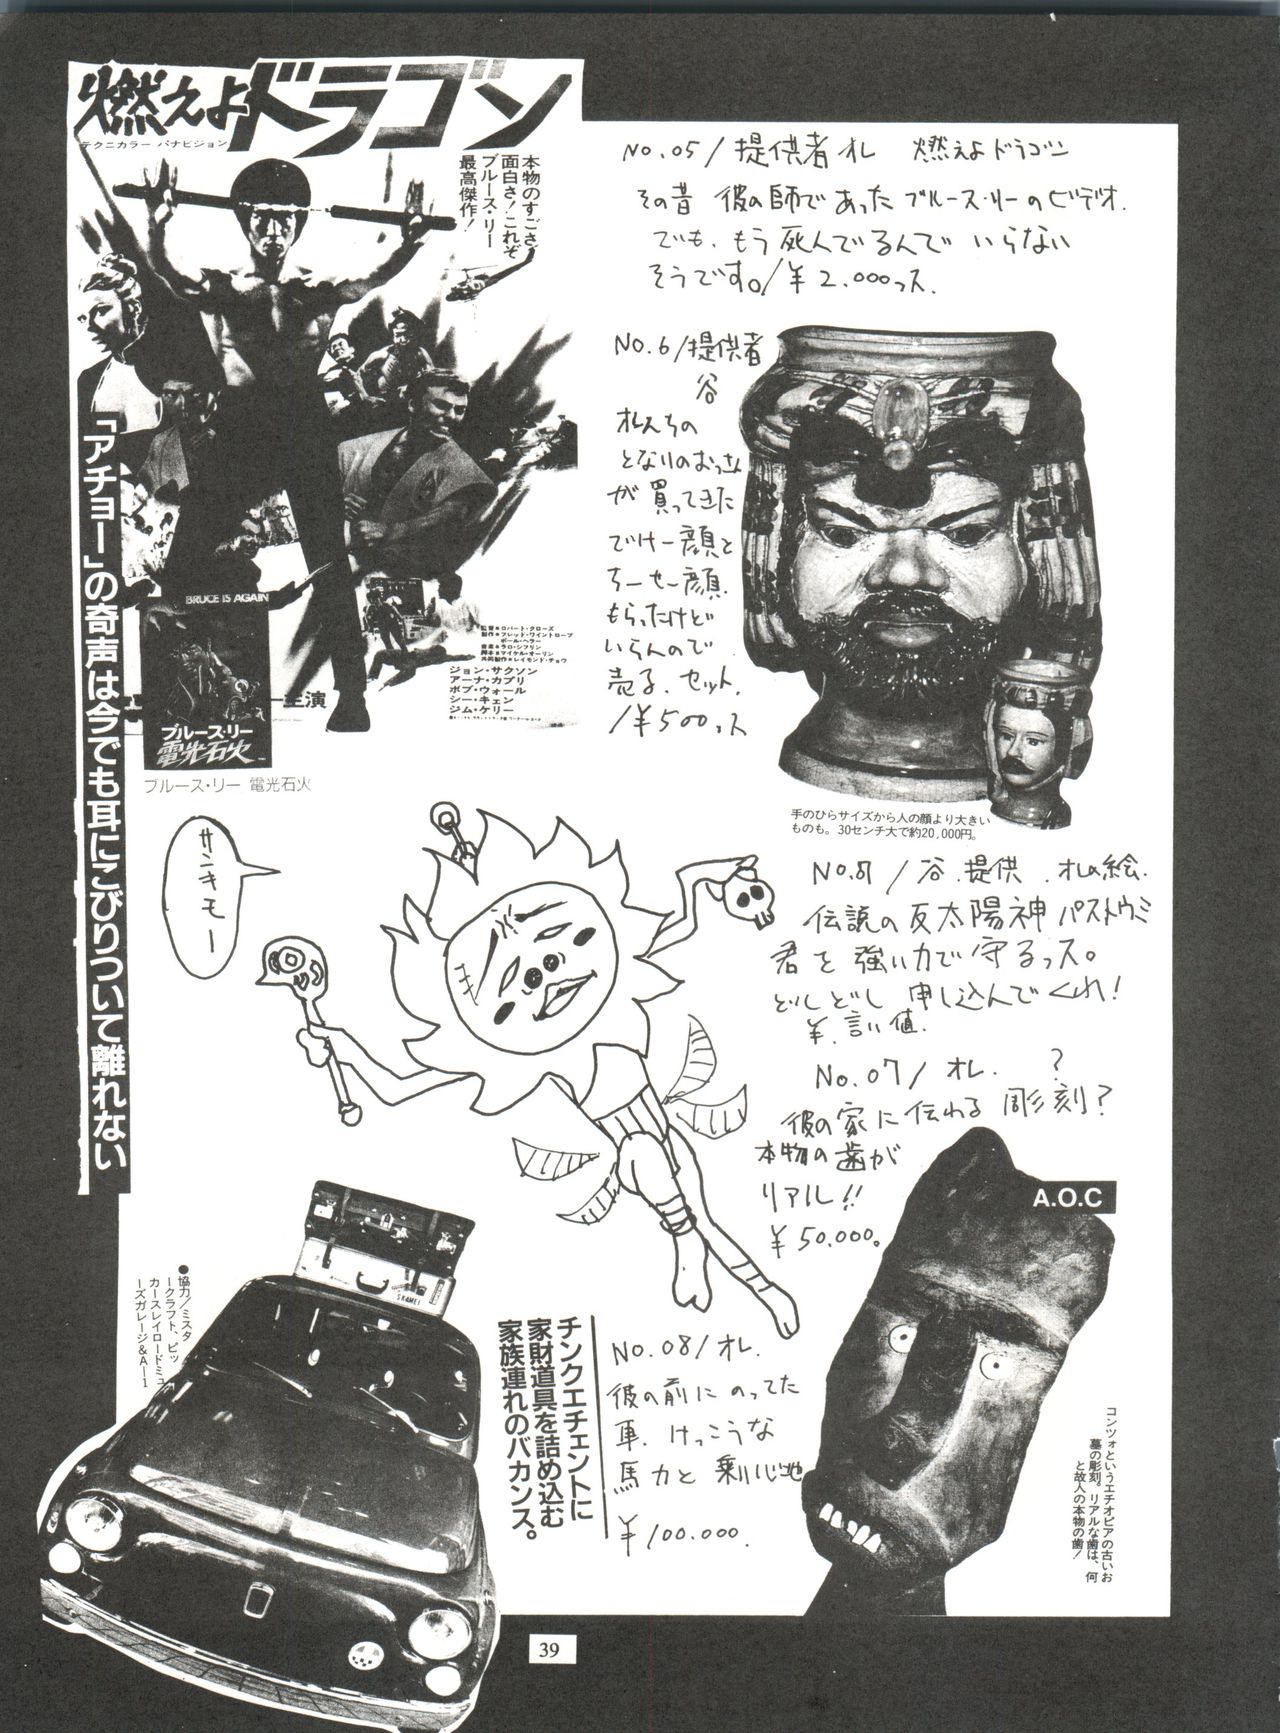 燃えよドラゴン
テクニカラー パナビジョン
本物のすごさ、
面白さ!これぞ
ブルース・リー
最高傑作!
BRUCE IS AGAIN
監督●ロバート・クローズ
製作●フレッド・ワイントローブ
ポール・ヘラー
音楽●ラロ・シフリン
脚本●マイケル・オーリン
共同製作●レイモンド・チョウ
ジョン・サクソン
アーナ・カプリ
ボブ・ウォール
シー・キェン
ジム・ケリー
ー主演
ブルース・リー
電光石火
ブルース・リー 電光石火
「アチョー」の奇声は今でも耳にこびりついて離れない
No.05/提供者オレ 燃えよドラゴン
その昔 彼の師であったブルース・リーのビデオ.
でも、もう死んでるんで いらない
そうです。/¥2.000っス.
No.6/提供者
谷
オレんちの
となりのおっさん
が買ってきた
でけー顔と
ちーせー顔.
もらったけど
いらんので
売る.セット.
/¥500っス
手のひらサイズから人の顔より大きい
ものも。30センチ大で約20,000円。
サンキモー
/谷.提供 .オレの絵.
伝説の反太陽神パストウミ
君を強い力で守るっス。
どしどし申し込んでくれ!
¥.言い値.
No.07/オレ. ?
彼の家に伝わる彫刻?
本物の歯が
リアル!!
¥50.000。
A.O.C
コンツォというエチオピアの古いお
墓の彫刻。リアルな歯は、何
と故人の本物の歯!
●協力/ミスタ
ークラフト、ビッ
カースレイロードミュ
ーズガレージ&A-1
SKAMEI
チンクエチェントに
家財道具を詰め込む
家族連れのバカンス。
No.08/オレ.
彼の前にのってた
車.けっこうな
馬力と乗り心地
¥100.000.
39